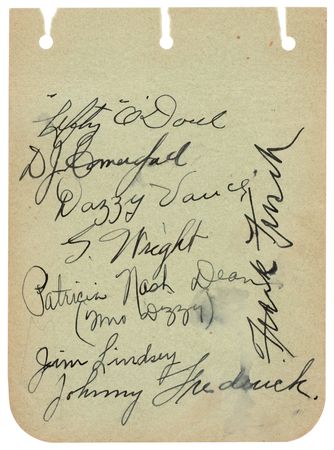 "Lefty" O'Doul
D.J. Comerford
Dazzy Vance
G. Wright
Patricia Nash Dean
(Mrs Dizzy)
Jim Lindsey
Johnny Frederick.
Frank Frisch